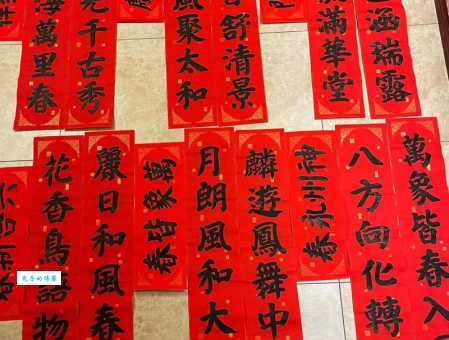 涵瑞露
滿華堂
舒清景
風聚太和
光千古秀
海萬里春
萬象皆春入
八方向化轉
神州永春
麟遊鳳舞中
月朗風和大
麗日和風春
花香鳥語物